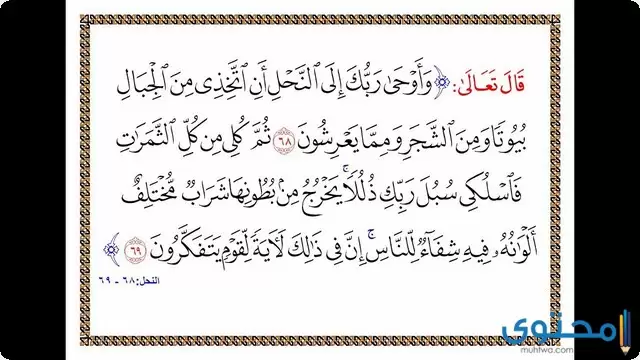 قَالَ تَعَالَىٰ: ﴿وَأَوْحَىٰ رَبُّكَ إِلَى ٱلنَّحْلِ أَنِ ٱتَّخِذِى مِنَ ٱلْجِبَالِ
بُيُوتًا وَمِنَ ٱلشَّجَرِ وَمِمَّا يَعْرِشُونَ ۝٦٨ ثُمَّ كُلِى مِن كُلِّ ٱلثَّمَرَٰتِ
فَٱسْلُكِى سُبُلَ رَبِّكِ ذُلُلًا ۚ يَخْرُجُ مِنۢ بُطُونِهَا شَرَابٌ مُّخْتَلِفٌ
أَلْوَٰنُهُۥ فِيهِ شِفَآءٌ لِّلنَّاسِ ۗ إِنَّ فِى ذَٰلِكَ لَءَايَةً لِّقَوْمٍ يَتَفَكَّرُونَ ۝٦٩﴾
النحل: ٦٨ - ٦٩
محتوى
muhtwa.com